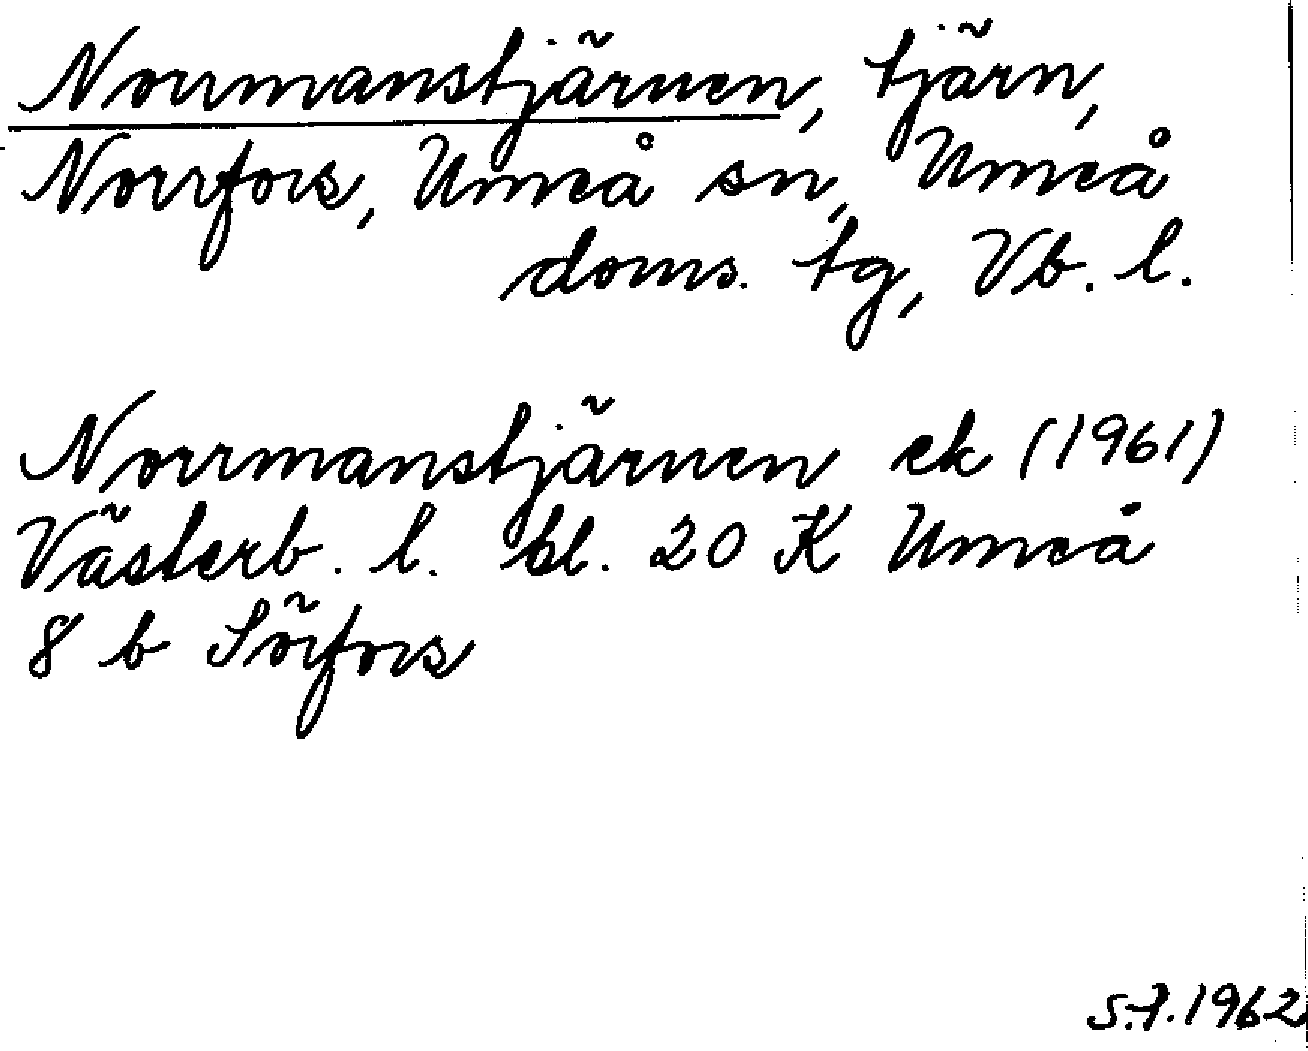 Norrmanstjärnen, tjärn,
Norrfors, Umeå sn, Umeå
doms. tg, Vb. l.
Norrmanstjärnen ek (1961)
Västerb. l. bl. 20 K Umeå
8 b Sörfors
S.F. 1962